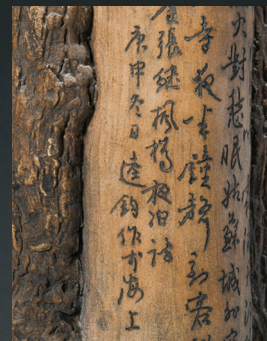 火對愁眠姑蘇城外寒
寺夜半鐘聲到客
張繼楓橋夜泊詩
庚申冬日逵鈞作於海上